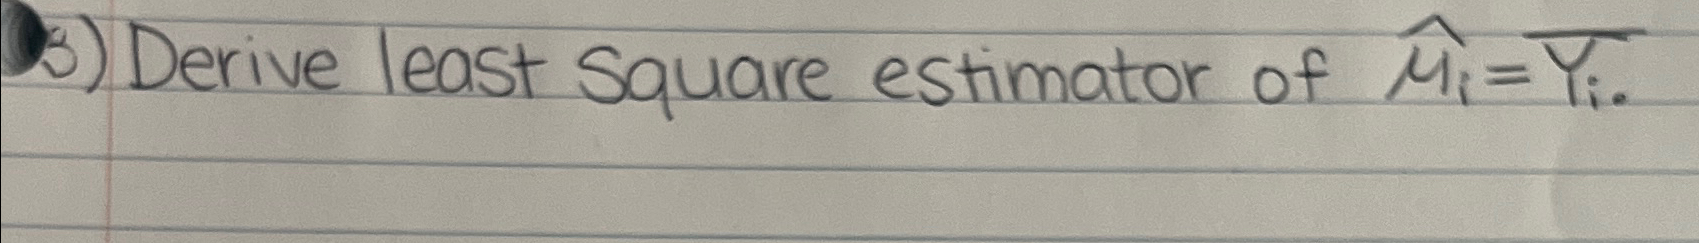 3) Derive least square estimator of μ̂ᵢ = Y̅ᵢ.